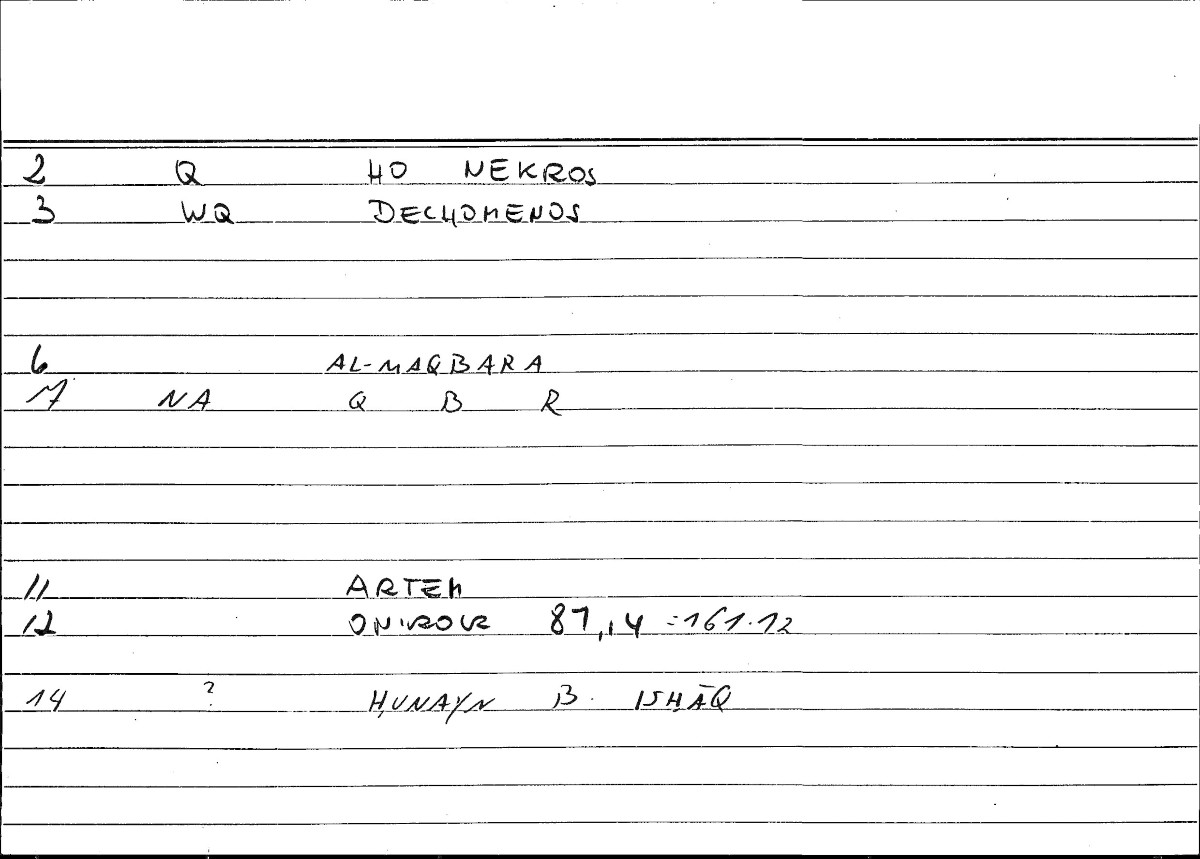 2 Q HO NEKROS
3 WQ DECHOMENOS
6 AL-MAQBARA
7 NA Q B R
11 ARTEM
12 ONIROCR 87,14 =161.12
14 ? ḤUNAYN B. ISḤĀQ